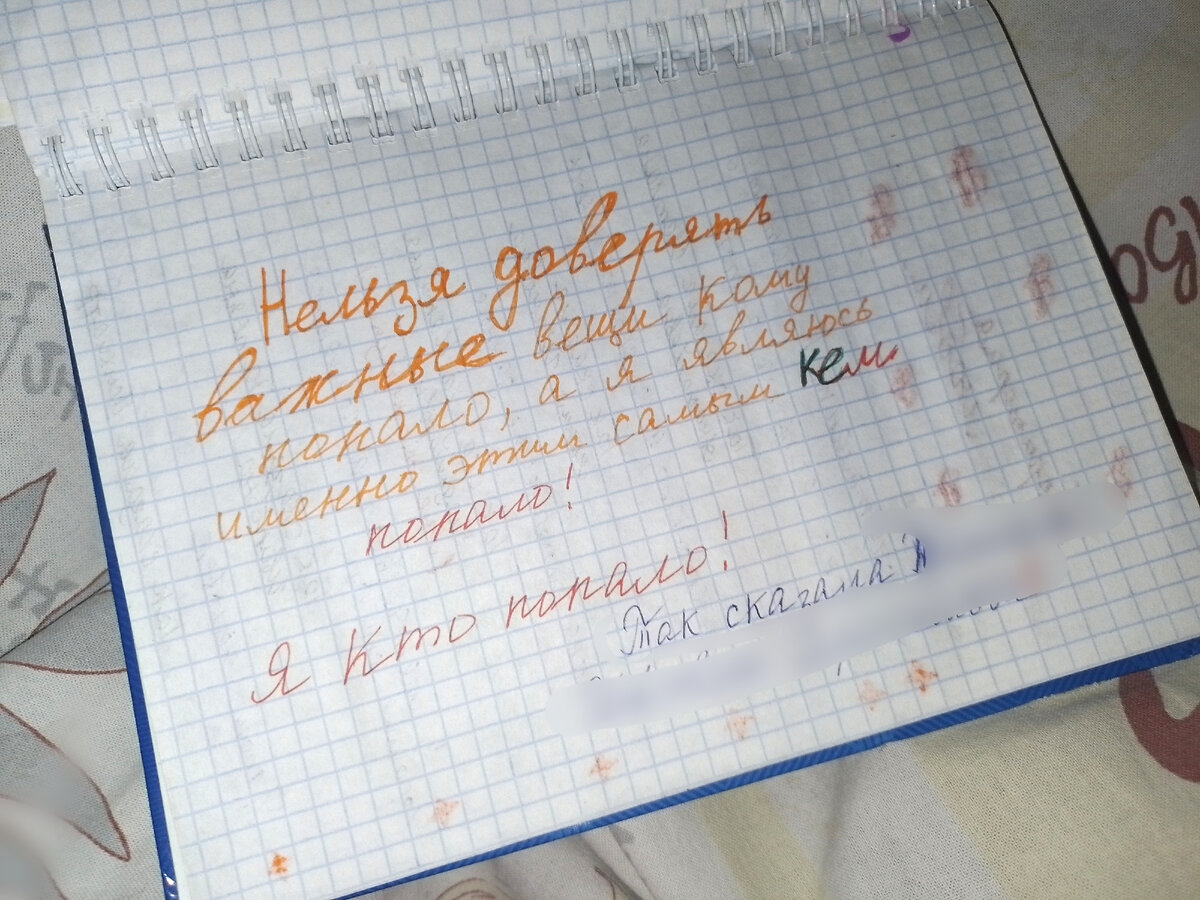 Нельзя доверять
важные вещи кому
попало, а я являюсь
именно этим самым кем
попало!
Я кто попало!
Так сказала